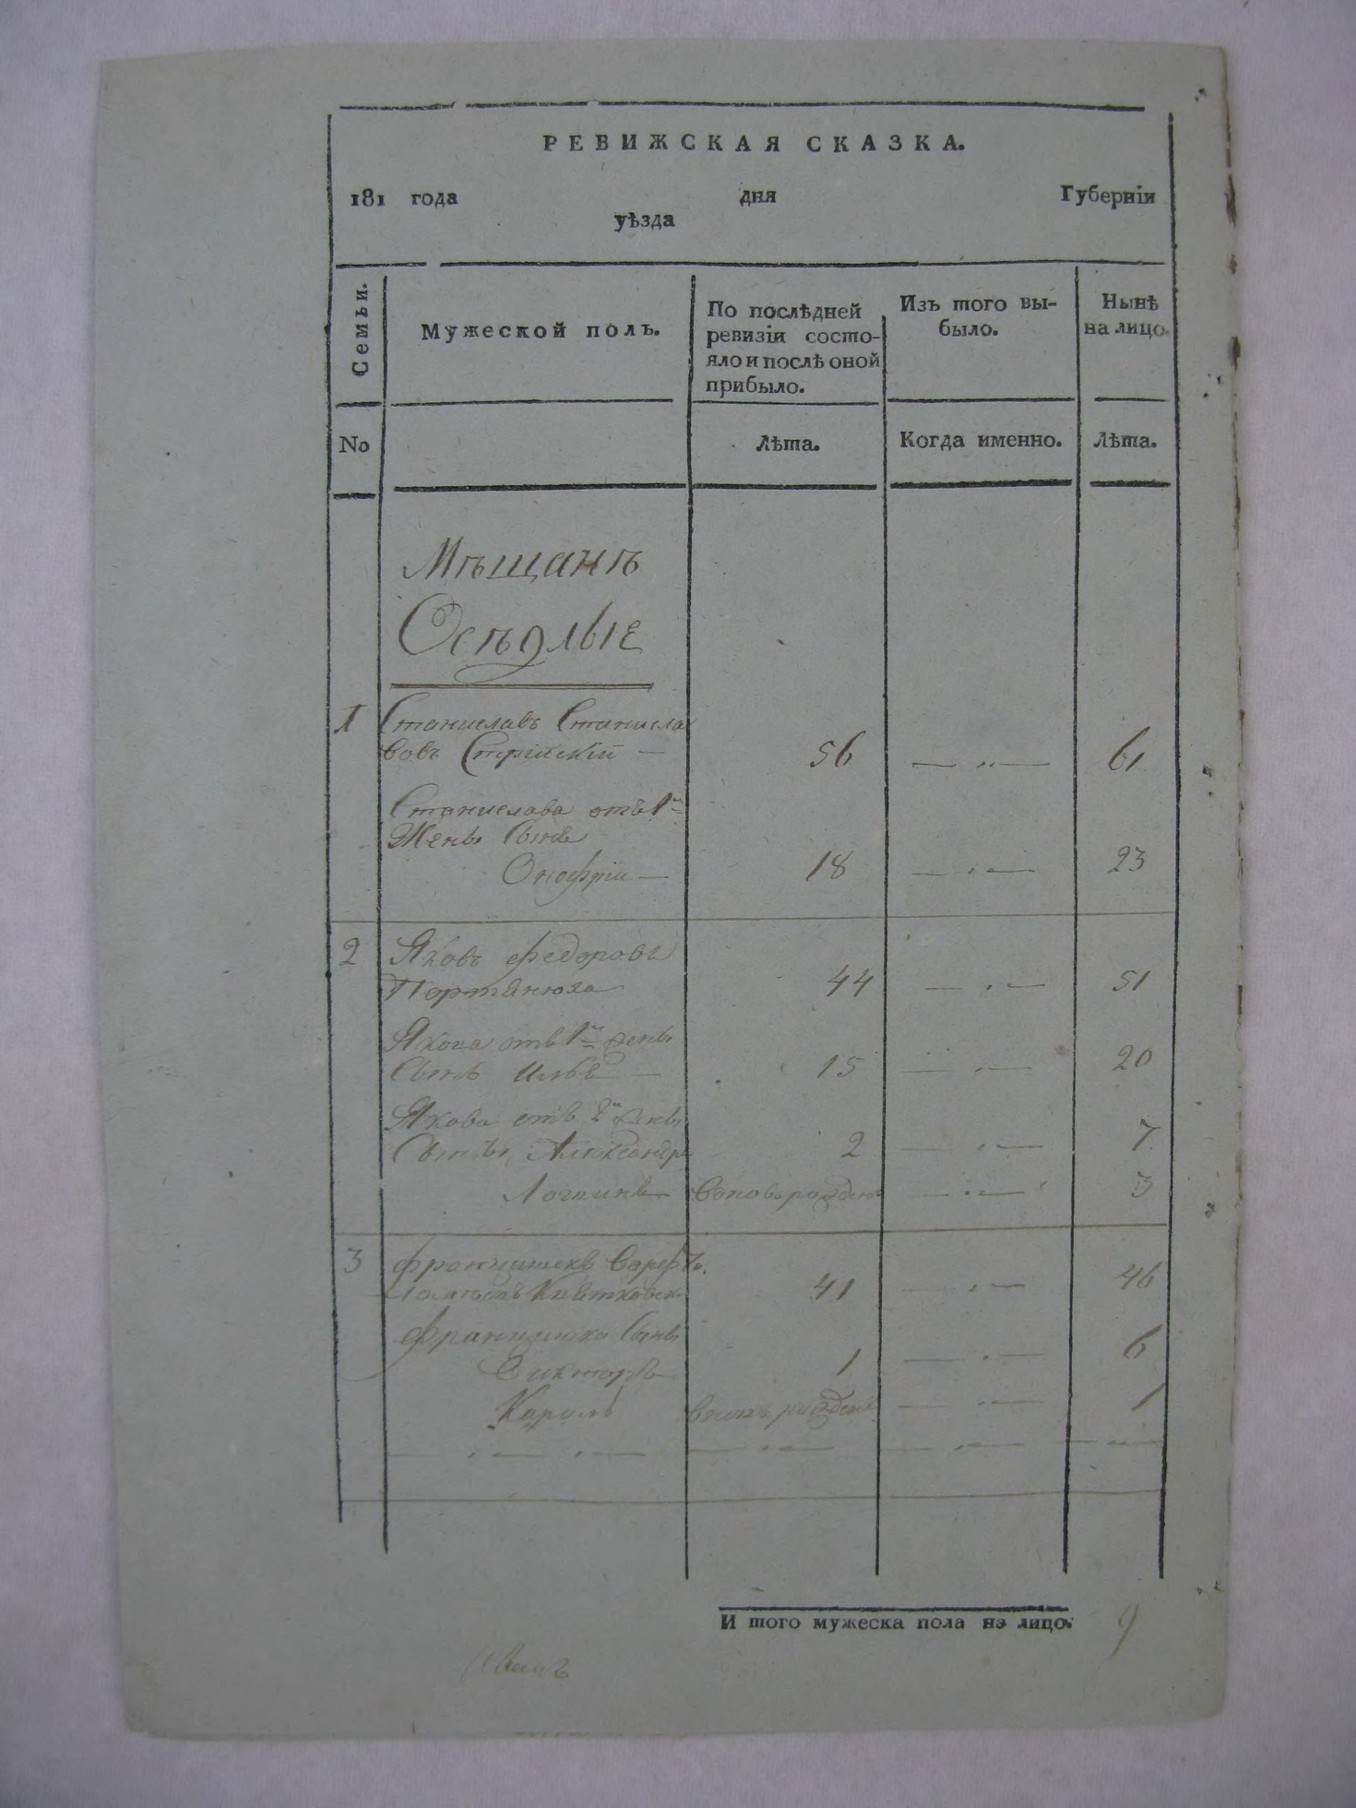 РЕВИЖСКАЯ СКАЗКА.
181 года дня Губернїи
уѣзда
Семьи.
Мужеской полъ.
По послѣдней
ревизїи состо-
яло и послѣ оной
прибыло.
Изъ того вы-
было.
Нынѣ
на лицо.
No
Лѣта.
Когда именно.
Лѣта.
Мѣщанѣ
Осѣдлые
1 Станиславъ Станисла
вовъ Стрийскїй — 56 — „ — 61
Станислава отъ 1й
Жены Сынъ
Онофрїи — 18 — „ — 23
2 Яковъ Федоровъ
Портянюха 44 — „ — 51
Якова отъ 1й жены
Сынъ Илья — 15 — „ — 20
Якова отъ 2й жены
Сыны Александръ 2 — „ — 7
Логинъ вновь рожденъ — „ — 3
3 Францишекъ
41 — „ — 46
Францишка Сыны
Викторъ 1 — „ — 6
Кароль вновь рожденъ — „ — 1
И того мужеска пола на лицо. 9